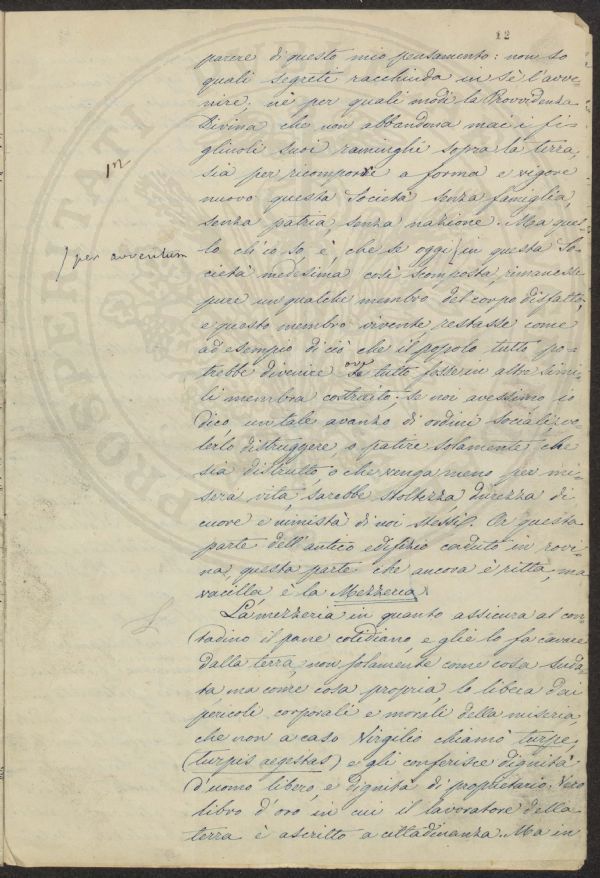 12
parere di questo mio pensamento: non so
quali segreti racchiuda in sè l'avve-
nire; nè per quali modi la Provvidenza
Divina che non abbandona mai i fi-
gliuoli suoi raminghi sopra la terra,
sia per ricomporre a forma e vigore
nuovo questa Società senza famiglia,
senza patria, senza nazione. Ma quel-
lo ch'io so, è, che se oggi / in questa So-
/ per avventura
cietà medesima così scomposta, rimanesse
pure un qualche membro del corpo disfatto,
e questo membro vivente restasse come
ad esempio di ciò che il popolo tutto po-
trebbe divenire ove tutto fosse in altre simi-
li membra costruito: se noi avessimo io
dico, un tale avanzo di ordini sociali, vo-
lerlo distruggere o patire solamente che
sia distrutto, o che venga meno per mi-
sera vita, sarebbe stoltezza, durezza di
cuore e nimistà di noi stessi. Or questa
parte dell'antico edifizio caduto in rovi-
na, questa parte che ancora è ritta, ma
vacilla è la Mezzeria.
La mezzeria in quanto assicura al con-
tadino il pane cotidiano, e glie lo fa cavare
dalla terra, non solamente come cosa suda-
ta, ma come cosa propria, lo libera dai
pericoli corporali e morali della miseria,
che non a caso Virgilio chiamò turpe,
(turpis aegestas) e gli conferisce dignità
d'uomo libero, e dignità di proprietario. Vero
libro d'oro in cui il lavoratore della
terra è ascritto a cittadinanza. Ma in
PROSPERITATI